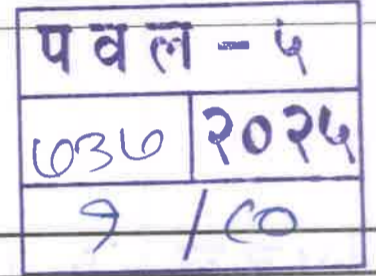 पवल - ५
७३७ २०२५
१ / ८०